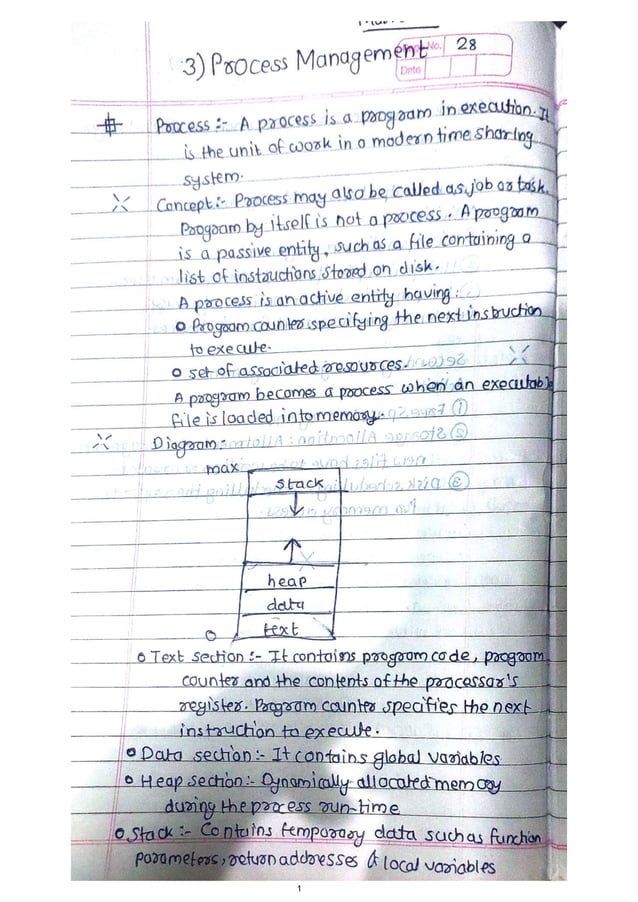 3) Process Management
Page No. 28
Date
Process :- A process is a program in execution. It
is the unit of work in a modern time sharing
system.
Concept :- Process may also be called as, job or task.
Program by itself is not a process. A program
is a passive entity, such as a file containing a
list of instructions stored on disk.
A process is an active entity having :
o Program counter specifying the next instruction
to execute.
o set of associated resources.
A program becomes a process when an executable
file is loaded into memory.
Diagram :-
max
stack
heap
data
text
0
o Text section :- It contains program code, program
counter and the contents of the processor's
register. Program counter specifies the next
instruction to execute.
o Data section :- It contains global variables
o Heap section :- Dynamically allocated memory
during the process run-time
o Stack :- Contains temporary data such as function
parameters, return addresses & local variables
1